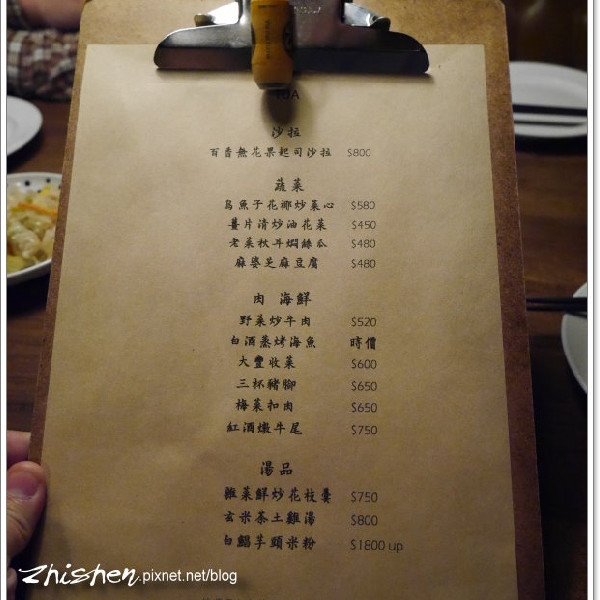 沙拉
百香無花果起司沙拉 $800
蔬菜
烏魚子花椰炒菜心 $580
薑片清炒油花菜 $450
老菜秋斗燜絲瓜 $480
麻婆芝麻豆腐 $480
肉 海鮮
野菜炒牛肉 $520
白酒蒸烤海魚 時價
大豐收菜 $600
三杯豬腳 $650
梅菜扣肉 $650
紅酒燉牛尾 $750
湯品
雞菜鮮炒花枝羹 $750
玄米茶土雞湯 $800
白鯧芋頭米粉 $1800 up
zhishen.pixnet.net/blog